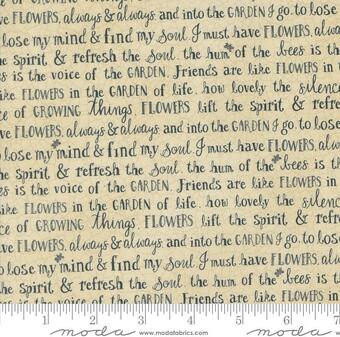 ce of GROWING things. FLOWERS lift the Spirit &
ve FLOWERS, always & always and into the GARDEN I go, to lose
o lose my mind & find my Soul. I must have FLOWERS, alwa
the spirit & refresh the Soul. the hum of the bees is th
es is the voice of the GARDEN. Friends are like FLOWERS in
ike FLOWERS in the GARDEN of life. how lovely the silenc
ce of GROWING things. FLOWERS lift the Spirit & re
ve FLOWERS, always & always and into the GARDEN I go, to lo
to lose my mind & find my Soul. I must have FLOWERS, al
the spirit & refresh the Soul. the hum of the bees is
es is the voice of the GARDEN. Friends are like FLOWERS in
like FLOWERS in the GARDEN of life. how lovely the sile
e of GROWING things. FLOWERS lift the Spirit &
ve FLOWERS, always & always and into the GARDEN I go, to lose
o lose my mind & find my Soul. I must have FLOWERS,
the spirit & refresh the Soul. the hum of the bees is
es is the voice of the GARDEN. Friends are like FLOWERS in
1 2 3 4 5 6 7
moda www.modafabrics.com moda